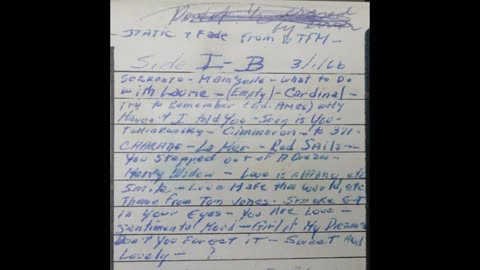 Part of 1/2 erased
by error
- STATIC & Fade From WTFM -
Side I-B 3/1/66
Serenata - Mam'selle - What to Do
with Laurie - (Empty) - Cardinal -
Try to Remember (Ed. Ames) Why
Haven't I told You - Song is You -
Tchiakovsky - Cimmeron - to
CHARADE - La Mer - Red Sails -
You Stepped out of A Dream -
Merry Widow - Love is etc
Smile - Love Makes the world, etc
Theme from Tom Jones - Smoke Get
in Your Eyes - You Are Love -
Sentimental Mood - Girl of My Dreams
Don't You Forget it - Sweet And
Lovely - ?